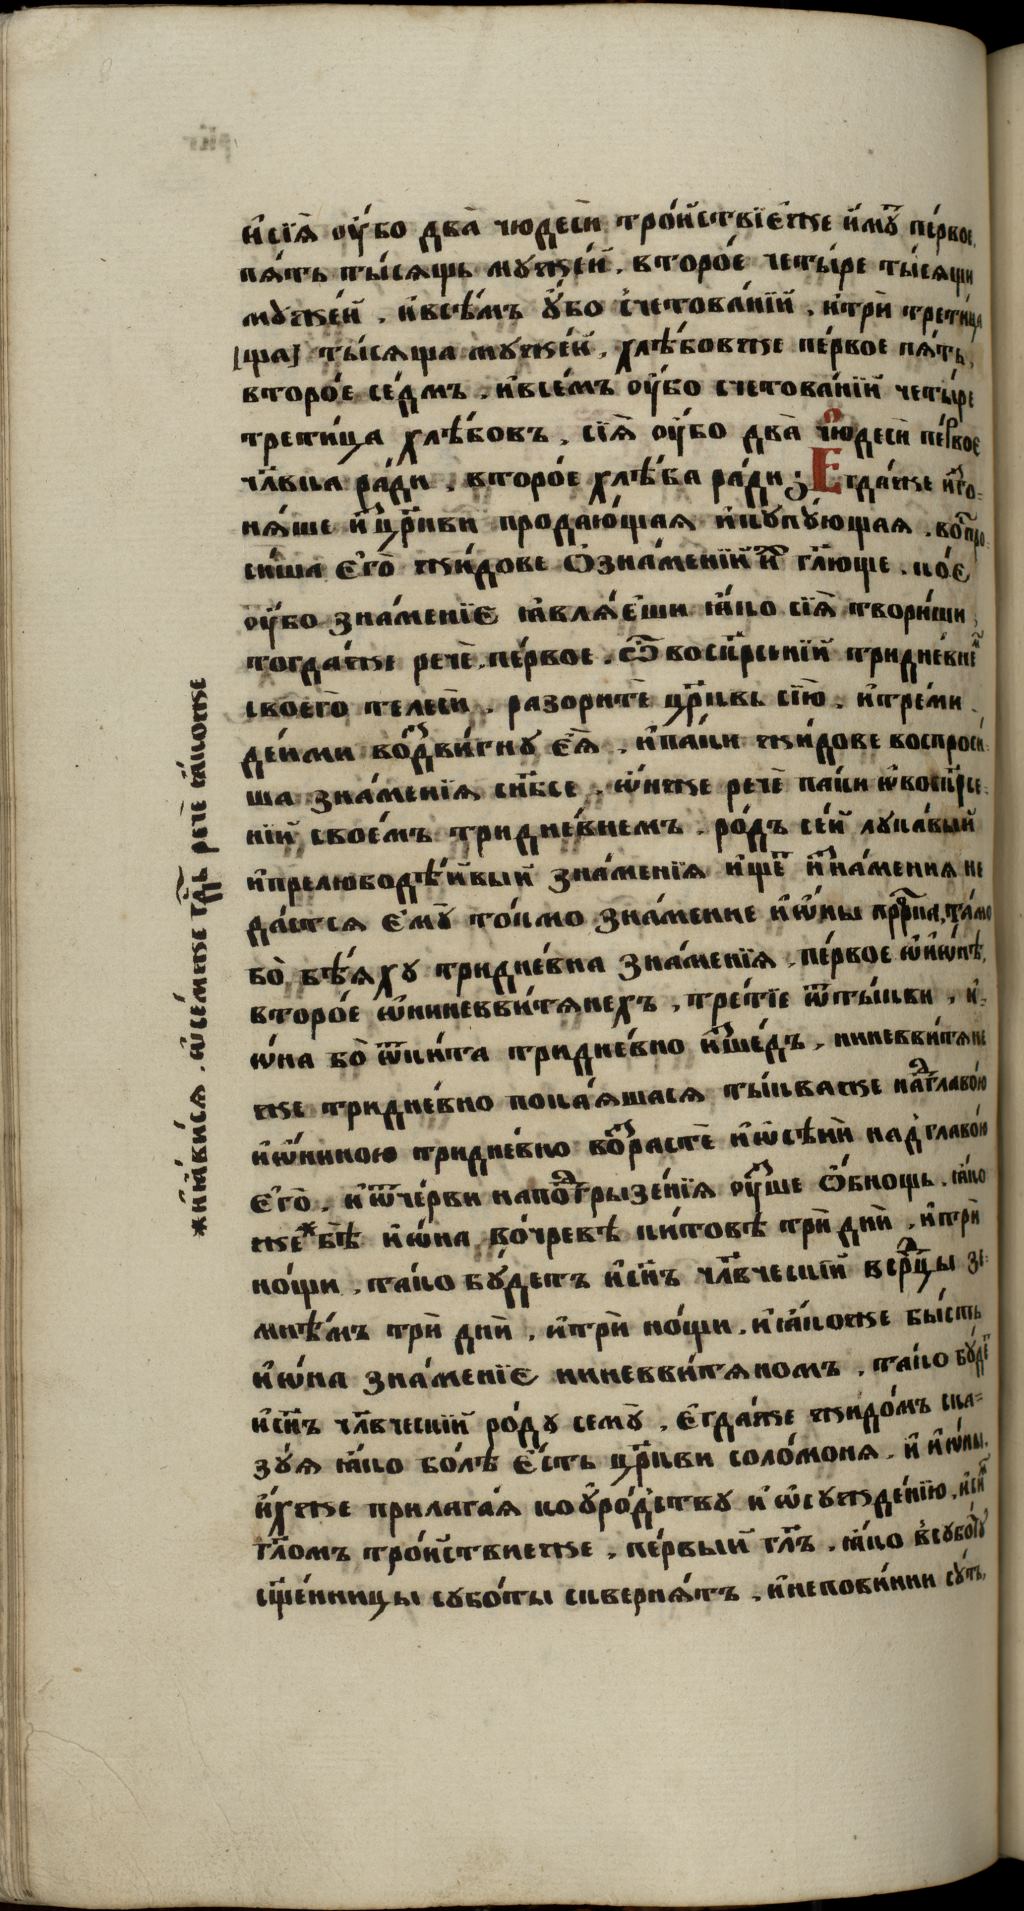 и҆сїѧ̀ оу҆́бо два̀ чюдесѝ тро́йствїе́же и҆му̑ пе́рвое,
пѧ́ть ты́сѧщь муже́й. второ́е четы́ре ты́сѧщи
мꙋже́й. и҆всѣ́мъ ᲂу҆́бо счетова́нїй. и҆трѝ трети́ца
[ща] ты́сѧща муже́й. хлѣ́бовже пе́рвое пѧ́ть,
второ́е се́дмъ. и҆все́мъ оу҆́бо счетова́нїй четы́ре
трети́ца хлѣ́бовъ. сїѧ̀ оу҆́бо два̀ чю́десѝ пе́рвое
чл҃вка ра́ди. второ́е хлѣ́ба ра́ди: Е҆гда́же и҆зго-
нѧ́ше и҆цр҃кви продаю́щаѧ и҆купу́ющаѧ. вопро-
си́ша є҆го̀ жи́дове ѡ҆зна́менїй гл҃юще. ко́е
оу҆́бо зна́менїє ꙗ҆влѧ́еши ꙗ҆́ко сїѧ̀ твори́ши,
тогда́же речѐ пе́рвое. ѿвоскр҃се́нїй тридне́внем
своего̀ телесѝ. разори́те цр҃квь сїю̀. и҆треми
де́йми воздви́гну є҆ѧ̀. и҆па́ки жи́дове воспроси-
ша зна́менїѧ с̾нб҃се. ѡ҆́нже речѐ паки ѡ҆воскр҃се-
нїй своемъ тридне́внемъ. ро́дъ се́й лука́вый
и҆прелюбодѣ́йвый зна́менїѧ и҆́ще и҆зна́мениѧ не
да́стсѧ є҆му̀ то́кмо зна́мение и҆ѡ҆́ны прⷪ҇рка, та́мо
бо̀ бѣ́ѧху тридне́вна зна́менїѧ. пе́рвое ѡ҆и҆ѡ҆́нѣ,
второ́е ѡ҆ниневви́тѧнехъ, тре́тїе ѿты́кви, и҆-
ѡ҆́на бо̀ ѿки́та тридне́вно и҆зше́дъ. ниневви́тѧне
же тридне́вно пока́ѧшасѧ ты́кваже над главо́ю
и҆ѡ҆́ниною тридне́вно возрастѐ и҆ѡ҆сѣнѝ над главо́ю
є҆го̀. и҆ѿче́рви напо́дгрызе́нїѧ оу҆́сше ѡ҆бнощь. ꙗ҆́ко
же * бѣ̀ и҆ѡ҆́на во чре́вѣ ки́товѣ трѝ днѝ. и҆трѝ
но́щи. та́ко бу́детъ и҆сн҃ъ чл҃вческїй в се́рдцы зе-
мнѣ́мъ трѝ днѝ. и҆трѝ но́щи. и҆ꙗ҆́коже бы́сть
и҆ѡ҆́на зна́менїє ниневви́тѧномъ. та́ко бу́де
и҆сн҃ъ чл҃вческїй ро́ду семꙋ̀. Є҆гда́же жидо́мъ ска-
зу́ѧ ꙗ҆́ко бо́лѣ є҆́сть цр҃кви соло́монѧ. и҆ и҆ѡ҆́ны.
и҆́хже прилага́ѧ ко у҆ро́дству и҆ ѡ҆сужде́нїю. и҆си́х
гл҃омъ тро́йствиеже. пе́рвый гл҃ъ. ꙗ҆́ко в̾субо́ту
сщ҃е́нницы субо́ты сквернѧ́тъ. и҆непови́нни су́ть.
* и҆ꙗ҆ви́сѧ. ѡ҆се́мже гдⷭ҇ь речѐ ꙗ҆́коже